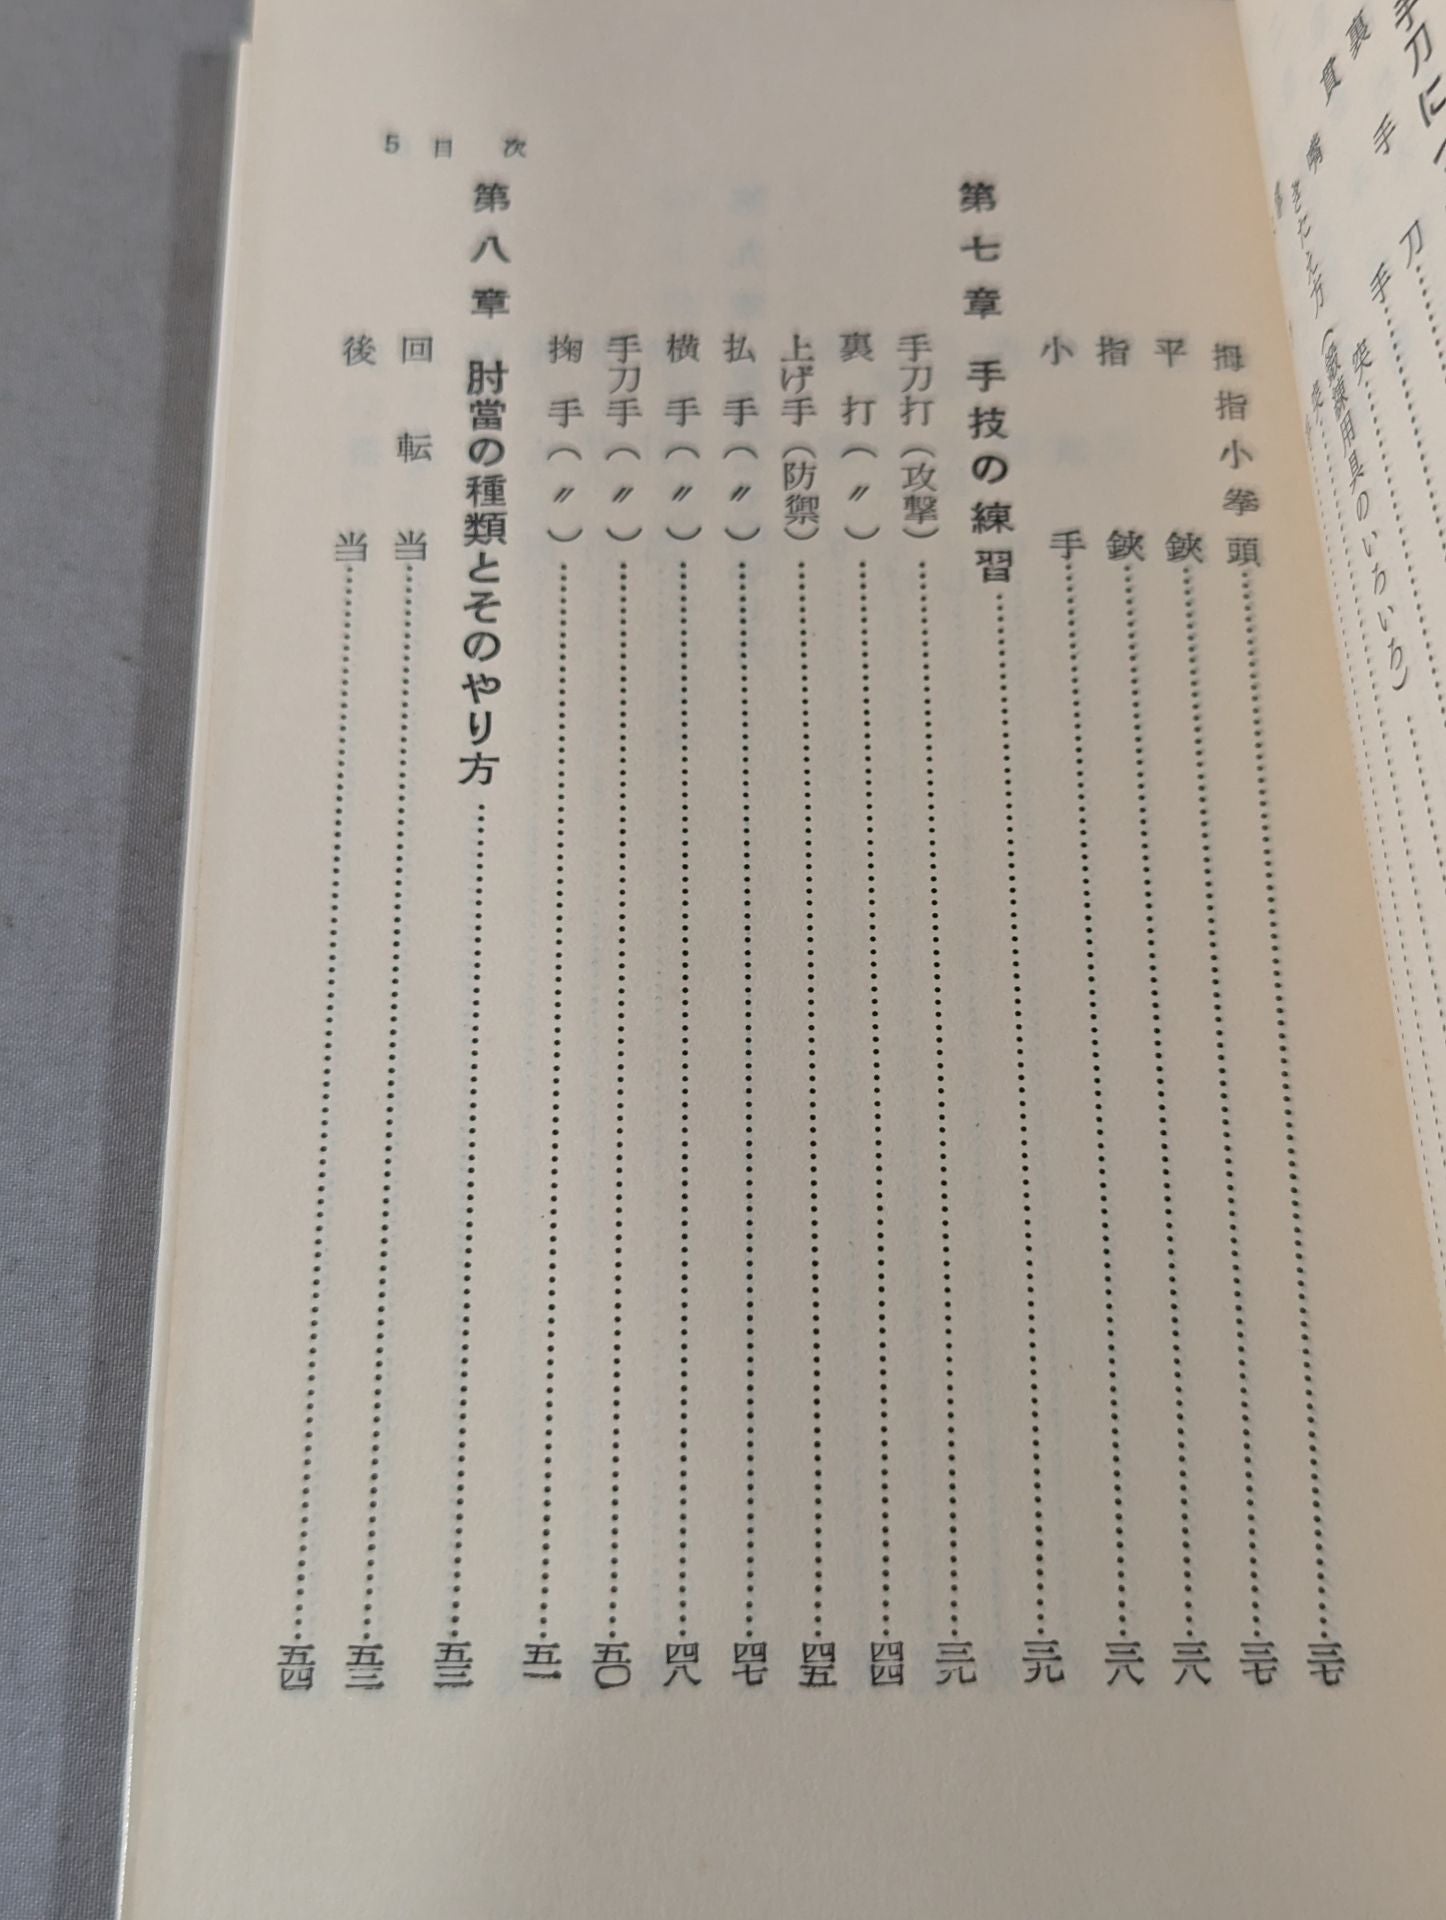 手刀に
裏手刀……
貫手……
嘴突……
きたえ方（鍛練用具のいろいろ）……
拇指小拳頭……三七
平鋏……三七
指鋏……三八
小手……三八
第七章 手技の練習……三九
手刀打（攻撃）……三九
裏打（〃）……四四
上げ手（防禦）……四五
払手（〃）……四七
横手（〃）……四八
手刀手（〃）……五〇
掬手（〃）……五一
第八章 肘當の種類とそのやり方……五三
回転当……五三
後当……五四
5 目 次